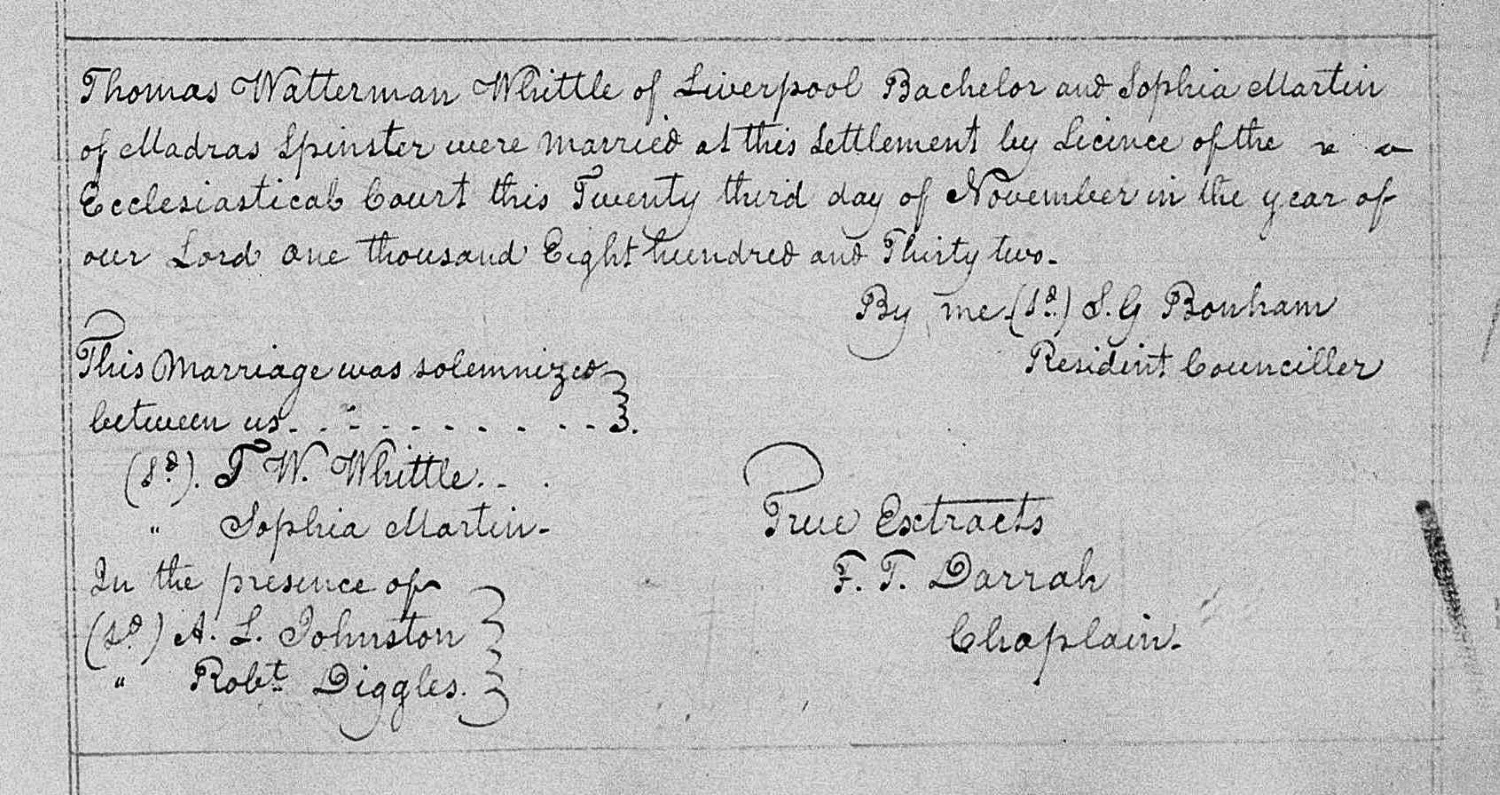 Thomas Watterman Whittle of Liverpool Bachelor and Sophia Martin
of Madras Spinster were married at this Settlement by Licence of the
Ecclesiastical Court this Twenty third day of November in the year of
our Lord One thousand Eight hundred and Thirty two.
By me (Sd.) S. G Bonham
Resident Counciller
This Marriage was solemnized
between us . . - . . . . . . - - .
(Sd). T W. Whittle . . .
" Sophia Martin -
In the presence of
(Sd) A. L. Johnston
" Robt. Diggles.
True Extracts
F. T. Darrah
Chaplain.